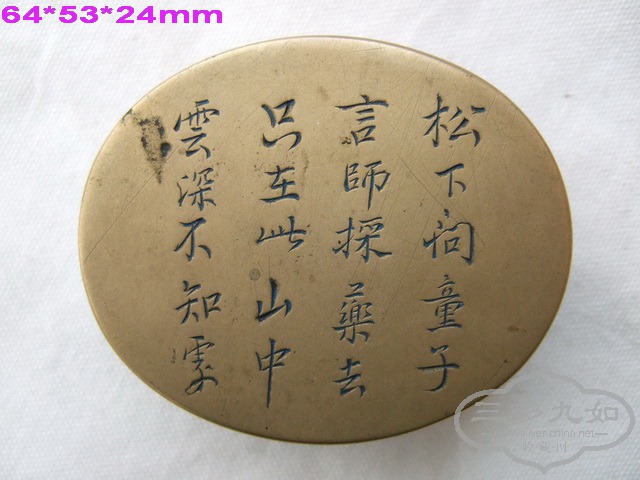 64*53*24mm
松下问童子
言師採藥去
只在此山中
雲深不知處
三多九如
收藏网